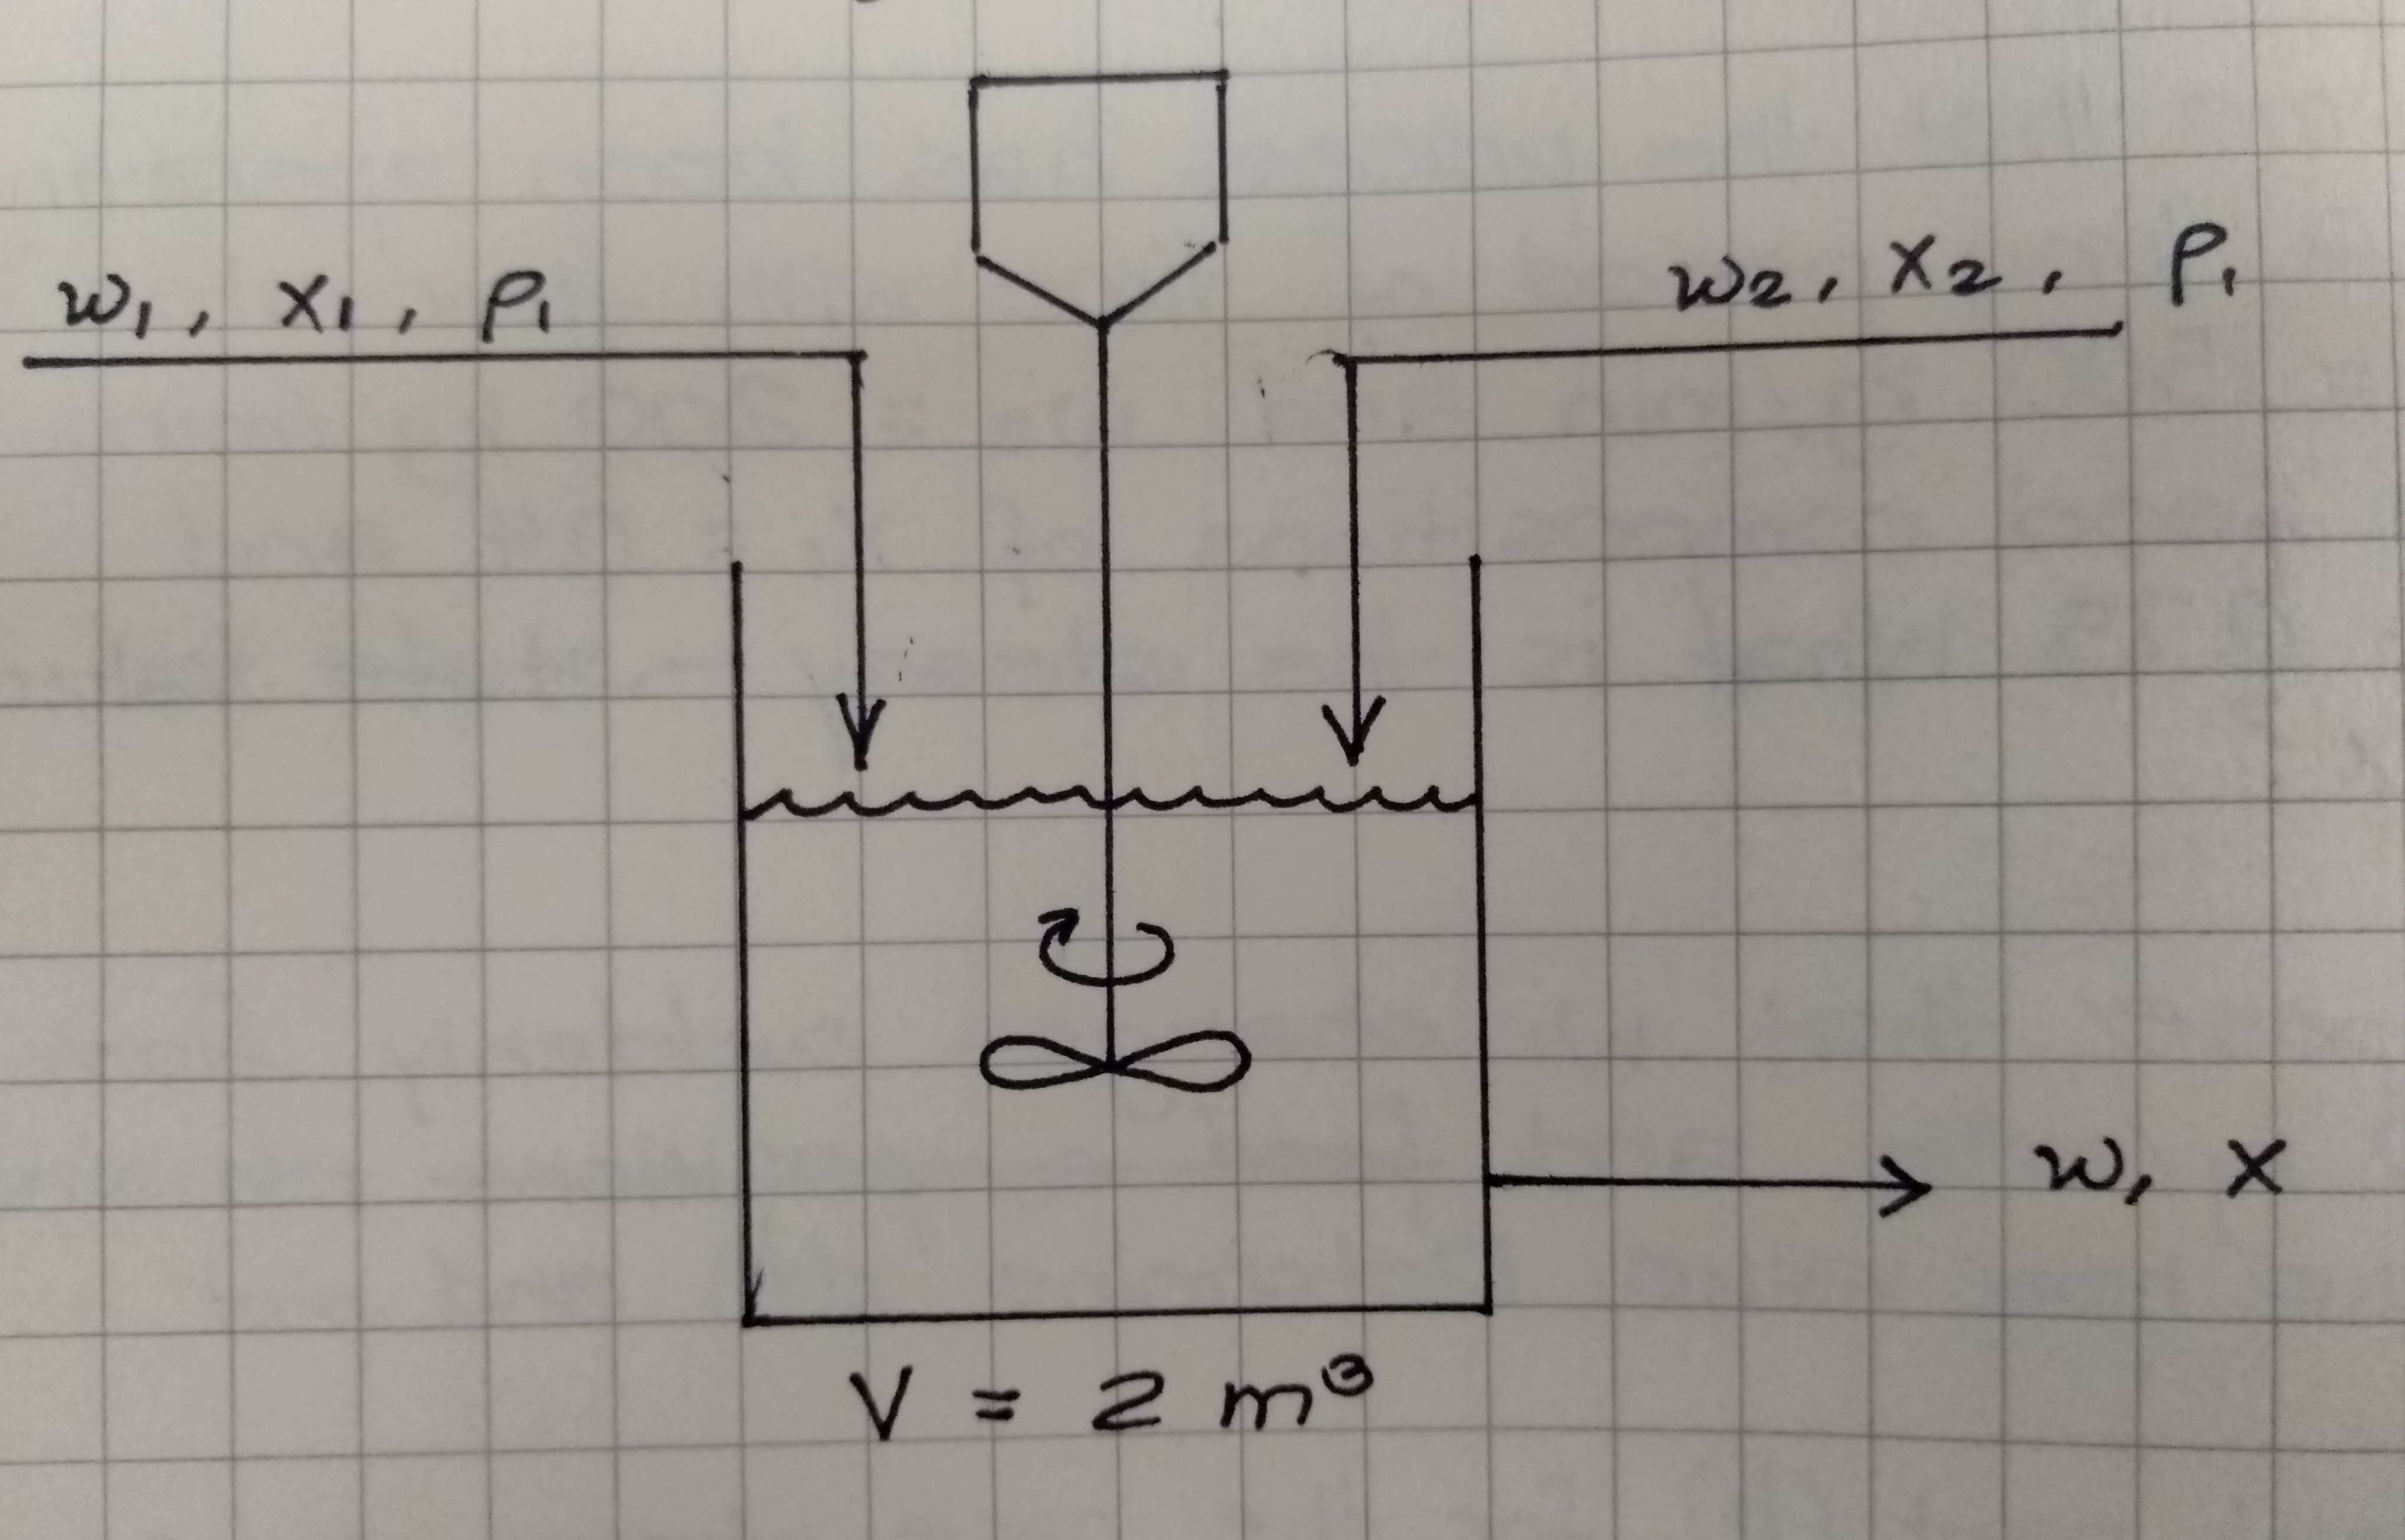 w₁, x₁, ρ₁
w₂, x₂, ρ₁
w, x
V = 2 m³